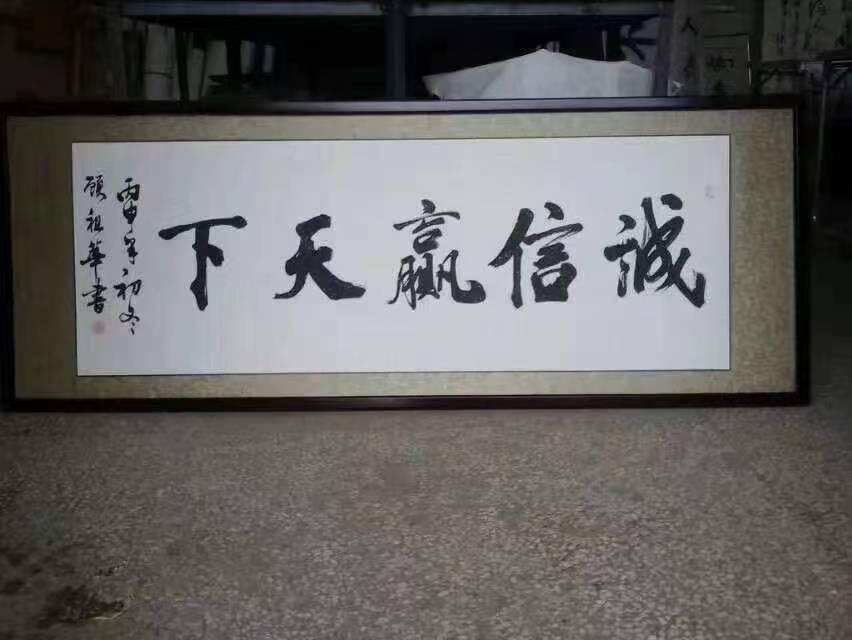 誠信贏天下
丙申年初冬
顾祖華書